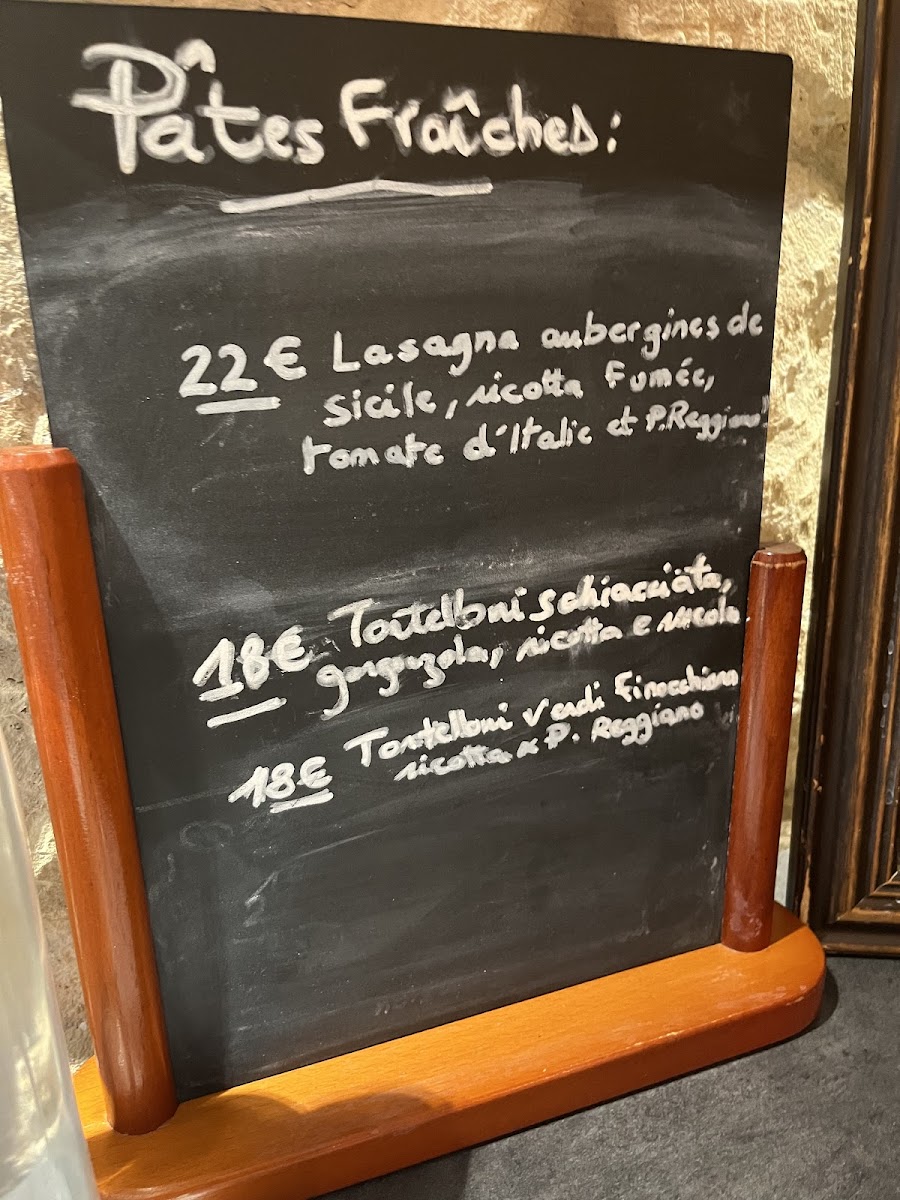 Pâtes Fraîches:
22€ Lasagna aubergines de
sicile, ricotta Fumée,
tomate d'Italie et P. Reggiano
18€ Tortelloni schiacciata,
gorgonzola, ricotta e rucola
18€ Tortelloni verdi Finocchiona
ricotta P. Reggiano